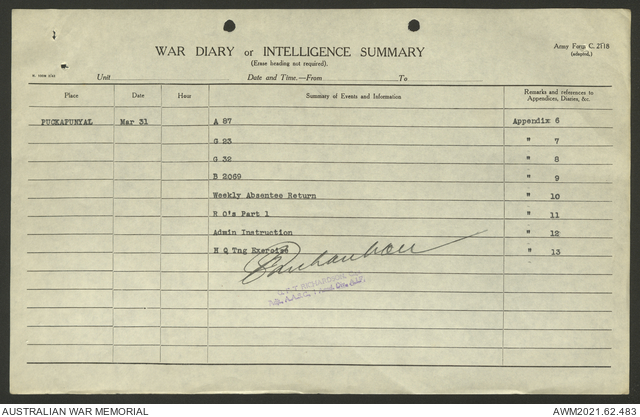 WAR DIARY or INTELLIGENCE SUMMARY
(Erase heading not required).
Army Form C. 2118
(adapted.)
Unit
Date and Time.—From To
Place Date Hour Summary of Events and Information Remarks and references to Appendices, Diaries, &c.
PUCKAPUNYAL Mar 31 A 87 Appendix 6
G 23 " 7
G 32 " 8
B 2069 " 9
Weekly Absentee Return " 10
R O's Part 1 " 11
Admin Instruction " 12
H Q Tng Exercise " 13
RICHARDSON
A.A.S.C.
AUSTRALIAN WAR MEMORIAL
AWM2021.62.483